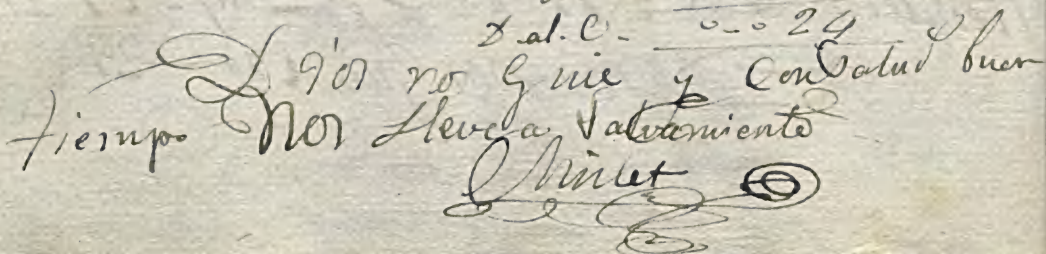 D. al. C. - 0..0 24
Dios no Guie y Con Salud buen
tiempo Nos lleve a Salvamiento